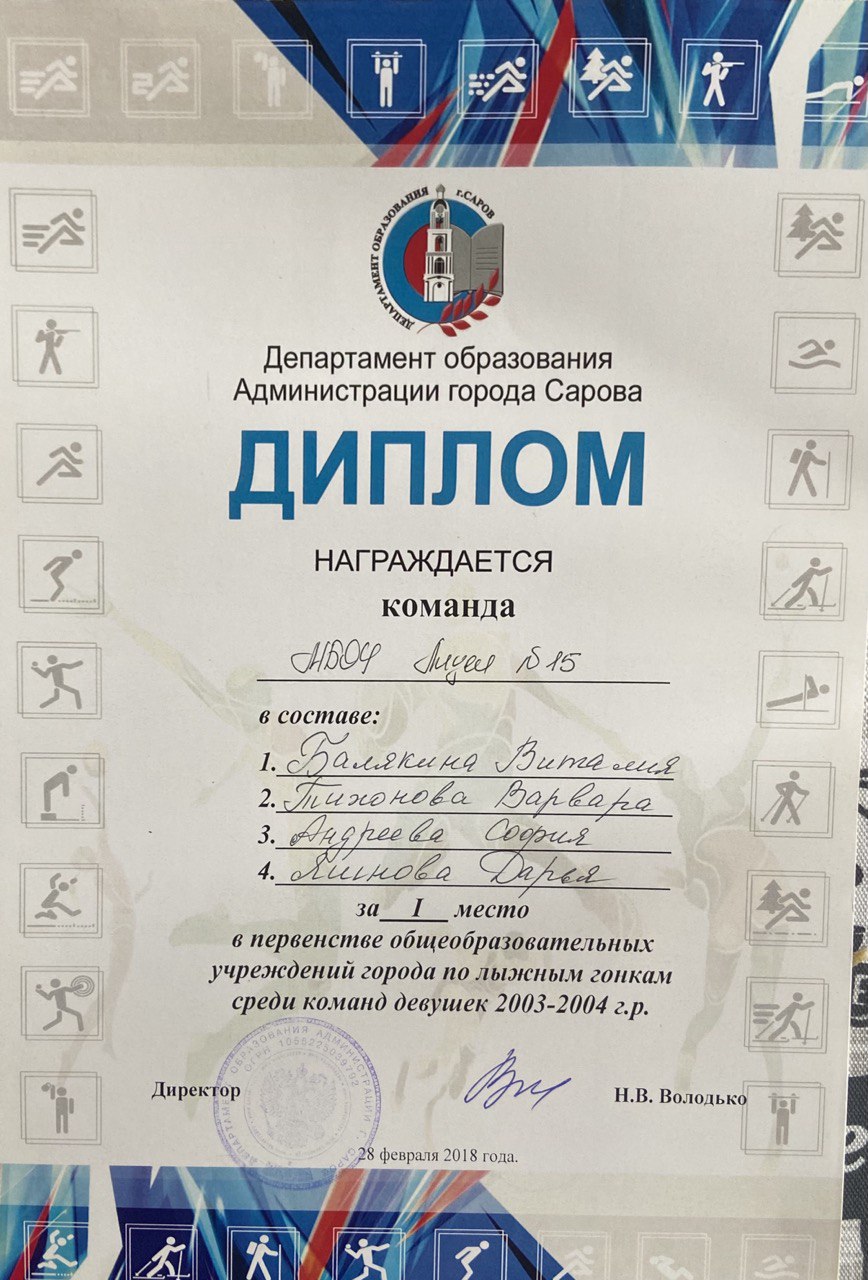 ДЕПАРТАМЕНТ ОБРАЗОВАНИЯ г.САРОВ
Департамент образования
Администрации города Сарова
ДИПЛОМ
НАГРАЖДАЕТСЯ
команда
МБОУ Лицей №15
в составе:
1. Балякина Виталия
2. Тихонова Варвара
3. Андреева София
4. Яшнова Дарья
за I место
в первенстве общеобразовательных
учреждений города по лыжным гонкам
среди команд девушек 2003-2004 г.р.
Директор
Н.В. Володько
28 февраля 2018 года.